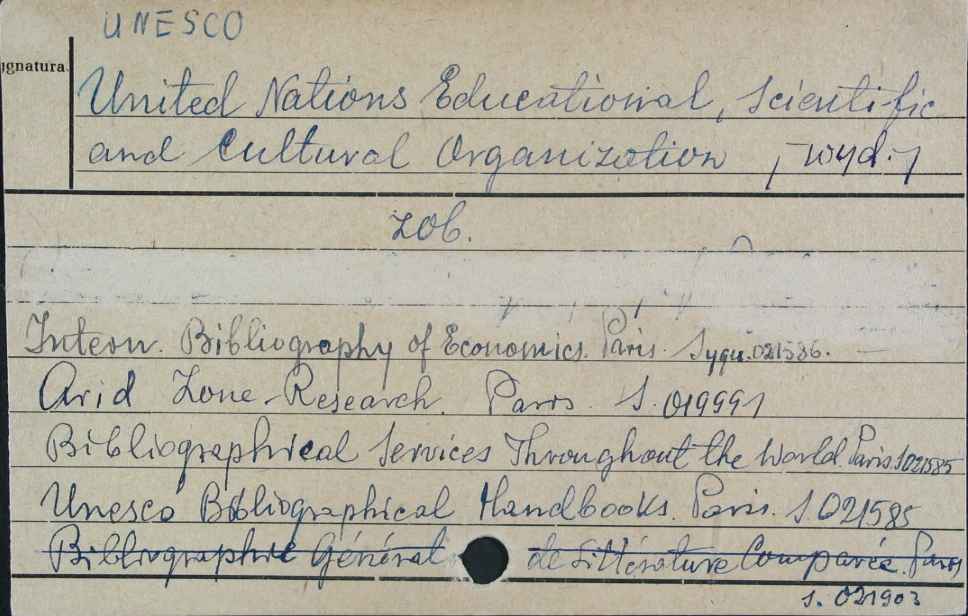 UNESCO
ygnatura.
United Nations Educational, Scientific
and Cultural Organization, /wyd./
zob.
Intern. Bibliography of Economics. Paris. Sygn. 021586.
Arid Zone Research. Paris. S. 019991
Bibliographical Services Throughout the World. Paris S 021585
Unesco Bibliographical Handbooks. Paris. S. 021585
Bibliographie Général de Littérature Comparée. Paris
S. 021903